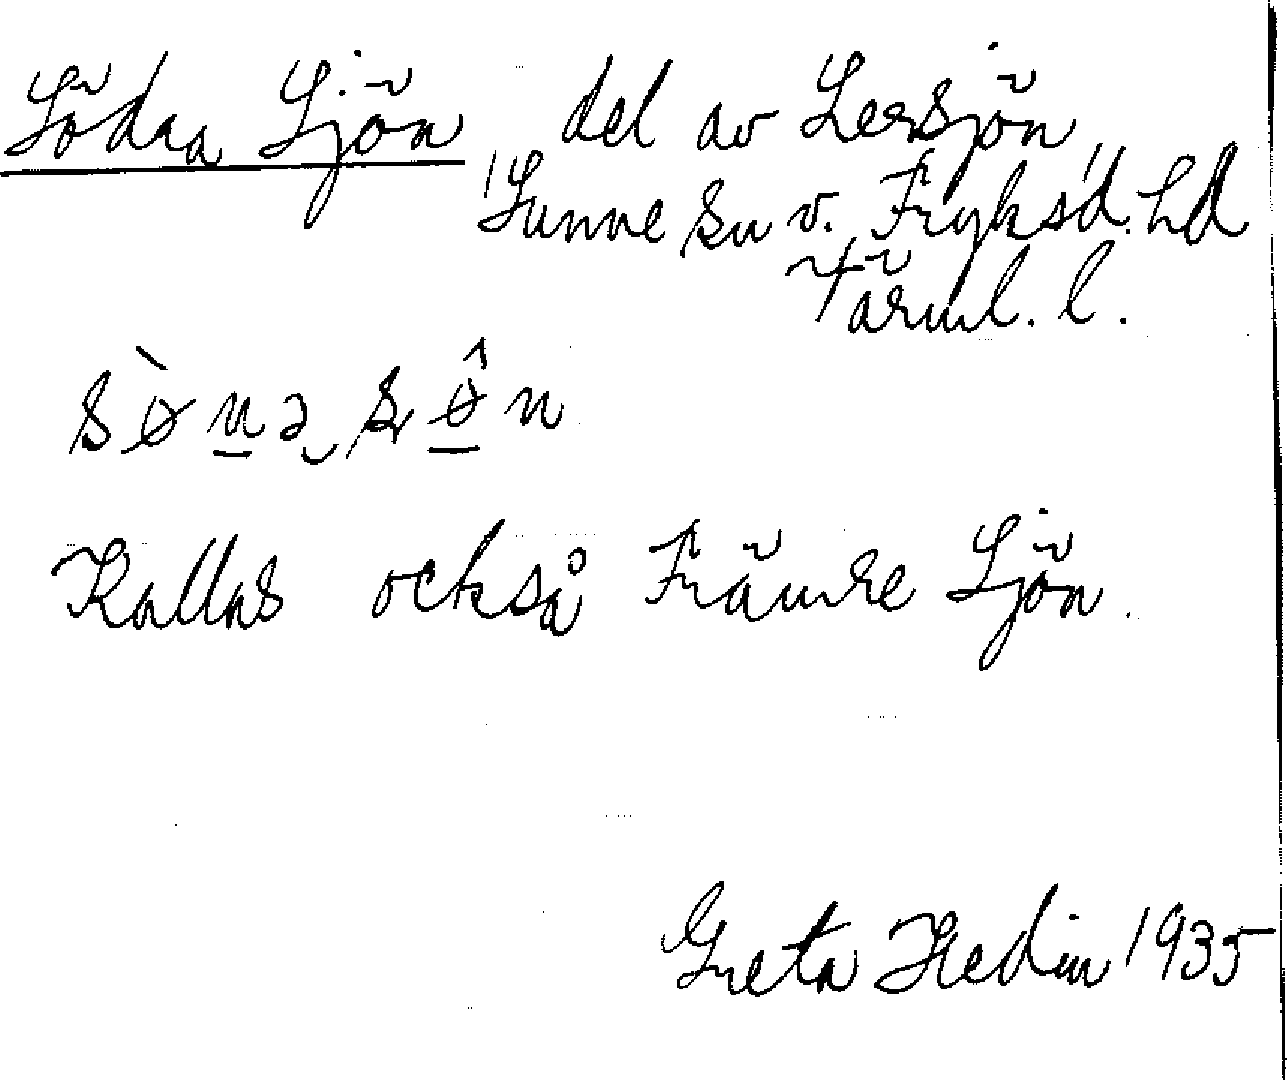 Södra Sjön del av Lersjön
Sunne sn v. Fryksd. hd
Värml. l.
sø̀nə‿sø̂n
Kallas också Främre Sjön.
Greta Hedin 1935